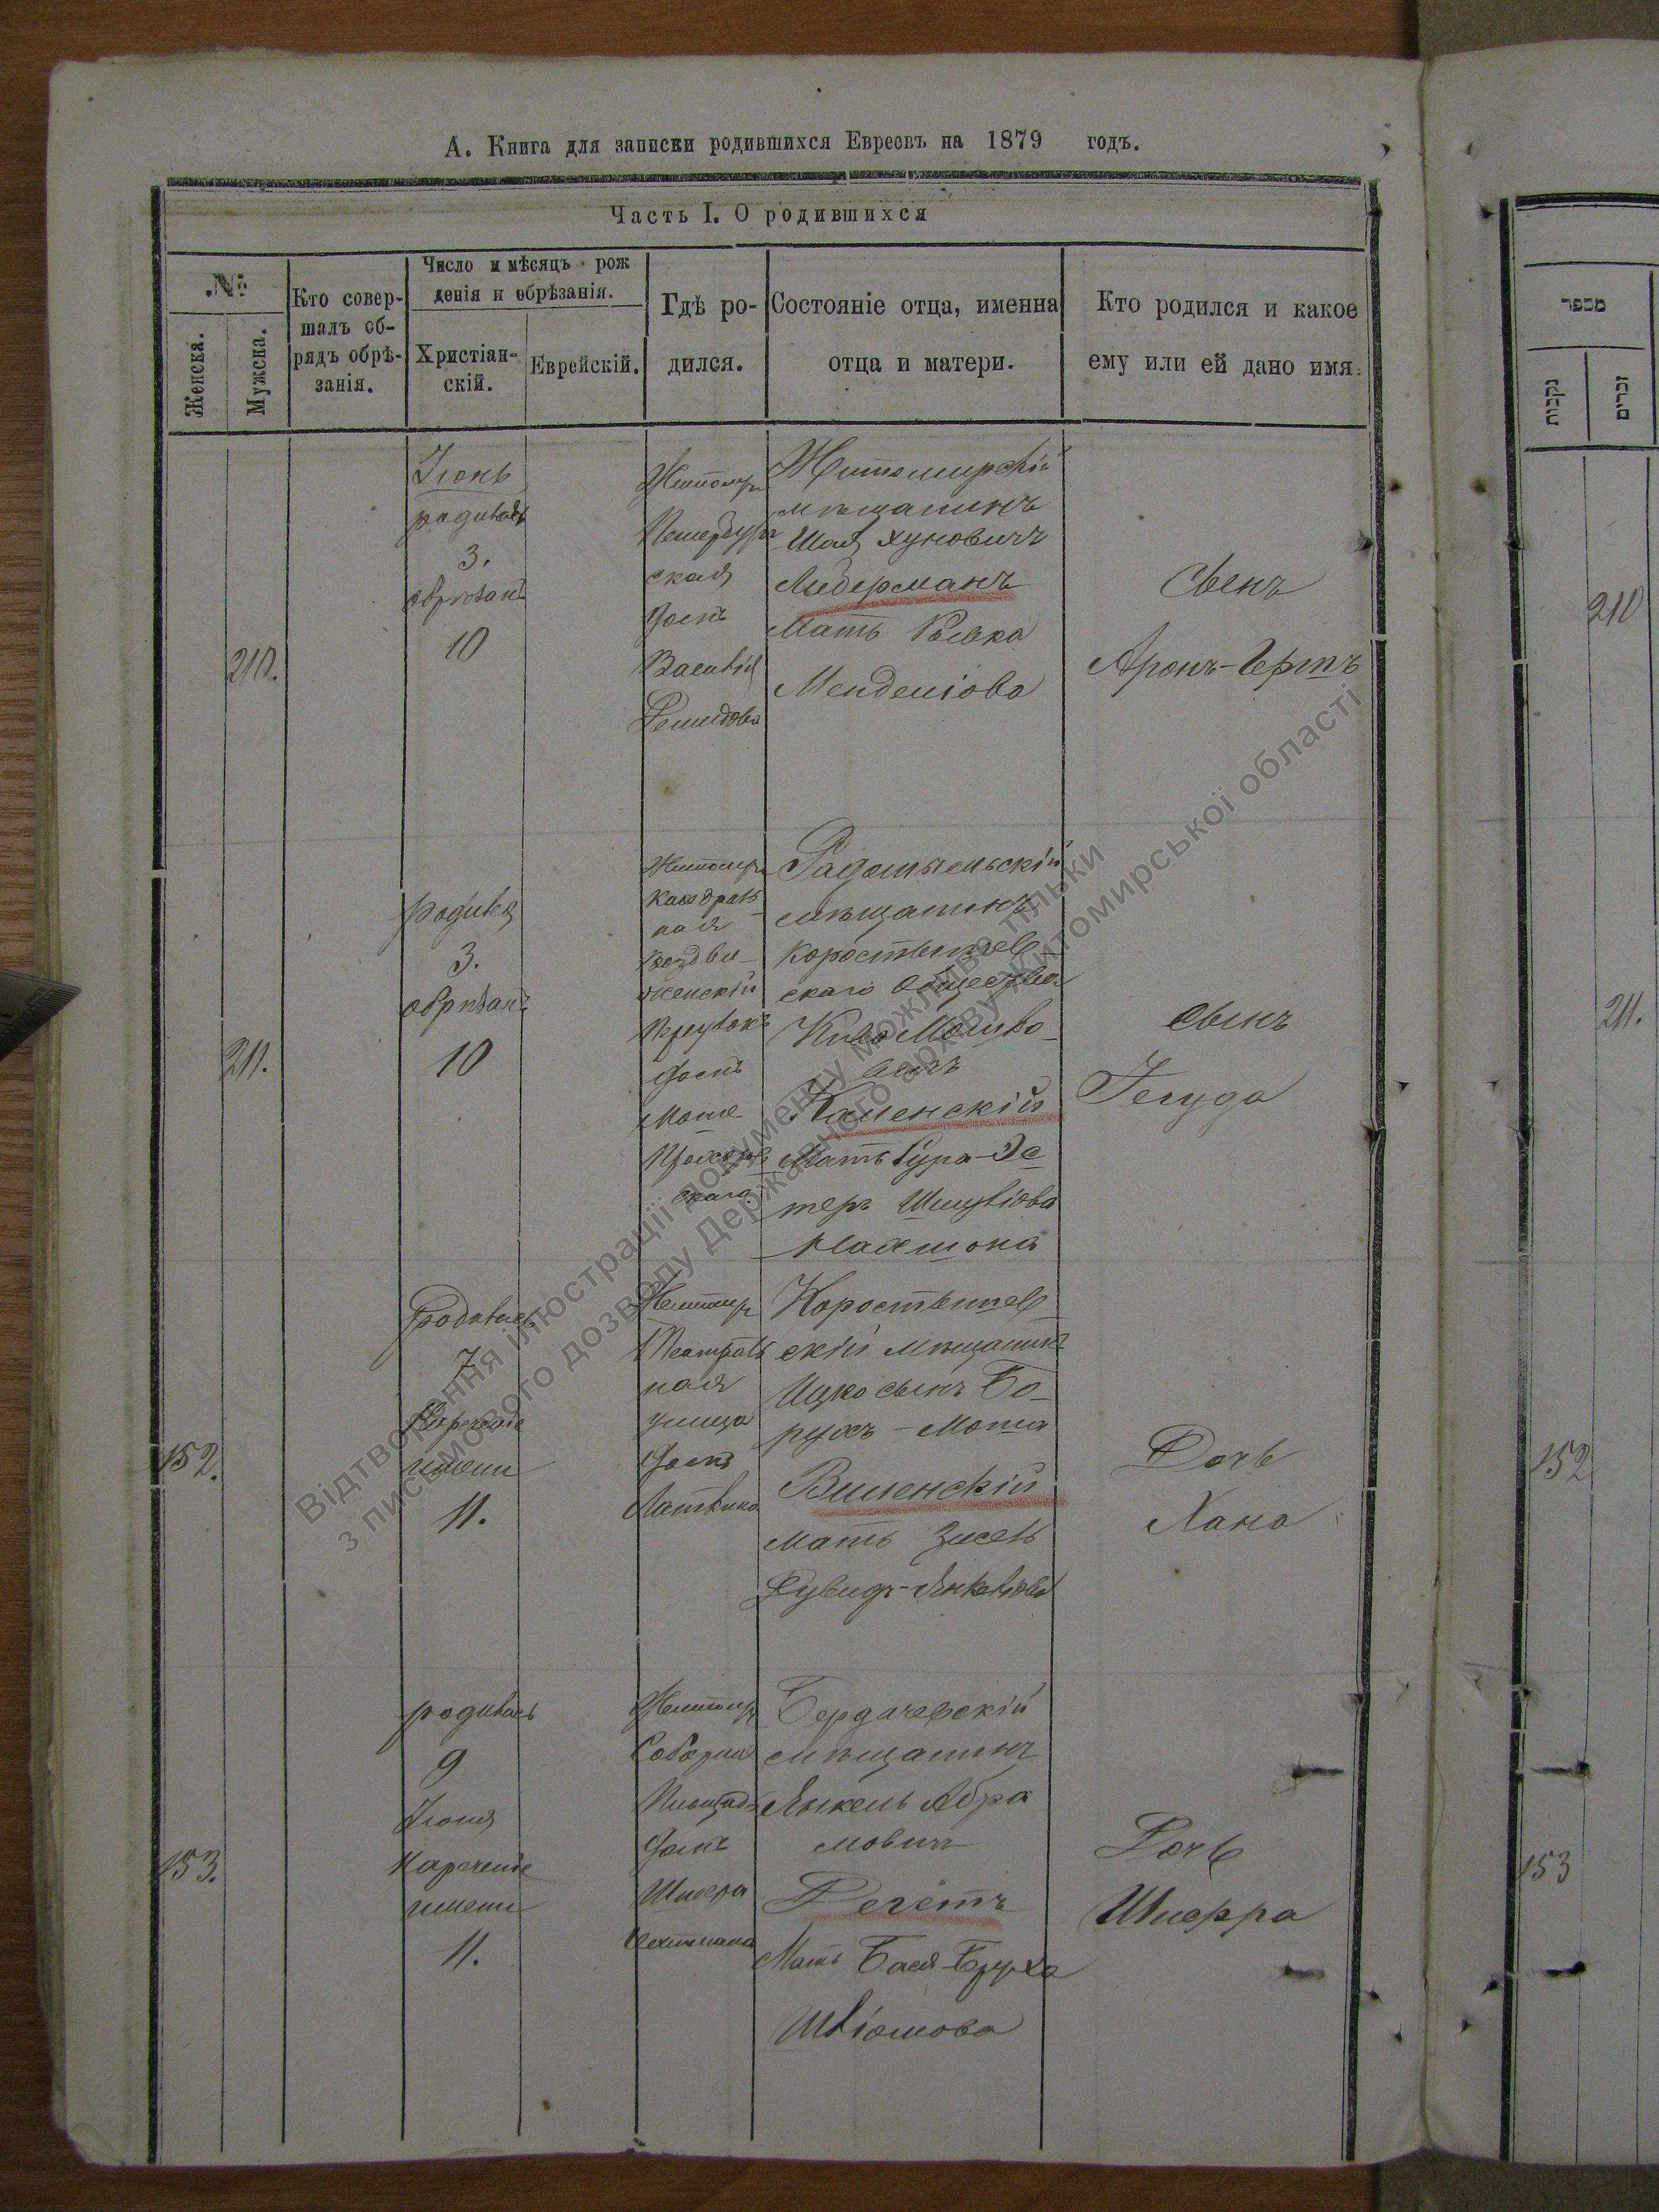 А. Книга для записки родившихся Евреевъ на 1879 годъ.
Часть I. О родившихся
№
Женска.
Мужска.
Кто совер-
шалъ об-
рядъ обрѣ-
занія.
Число и мѣсяцъ рож
денія и обрѣзанія.
Христіан-
скій.
Еврейскій.
Гдѣ ро-
дился.
Состояніе отца, именна
отца и матери.
Кто родился и какое
ему или ей дано имя.
210.
Іюнь
родился
3.
обрѣзанъ
10
Житомиръ
Петербург
ская
домъ
Василія
Житомирскій
мѣщанинъ
Шая Хуновичъ
Либерманъ
Мать Ривка
Менделіова
Сынъ
Аронъ-Герть
211.
родился
3.
обрѣзанъ
10
Житомиръ
Кафедраль
ная
Воздви-
женскій
переулокъ
домъ
Моте
скаго
Радомысльскій
мѣщанинъ
Коростышев
скаго Общества
Кива Мошко-
вичъ
Каменскій
Мать Сура-Эс
теръ Шмуліова
Сынъ
Іегуда
152.
Родилась
7
Наречение
имени
11.
Житомиръ
Театраль
ная
улица
домъ
Латкина
Коростышев
скій Мѣщанинъ
Ицко сынъ Бо-
рухъ-Мота
Виленскій
Мать Зисель
Рувидъ-Янкеліова
Дочь
Хана
153.
родилась
9
Іюня
Наречение
имени
11.
Житомиръ
Соборная
Площадь
домъ
Шмера
Бердичевскій
мѣщанинъ
Янкель Абра
мовичъ
Регетъ
Мать Бася-Бруха
Шліомова
Дочь
Шперра
מספר
נקבות
זכרים
210
211.
152
153
Відтворення ілюстрації документу можливо тільки
з письмового дозволу Державного архіву Житомирської області